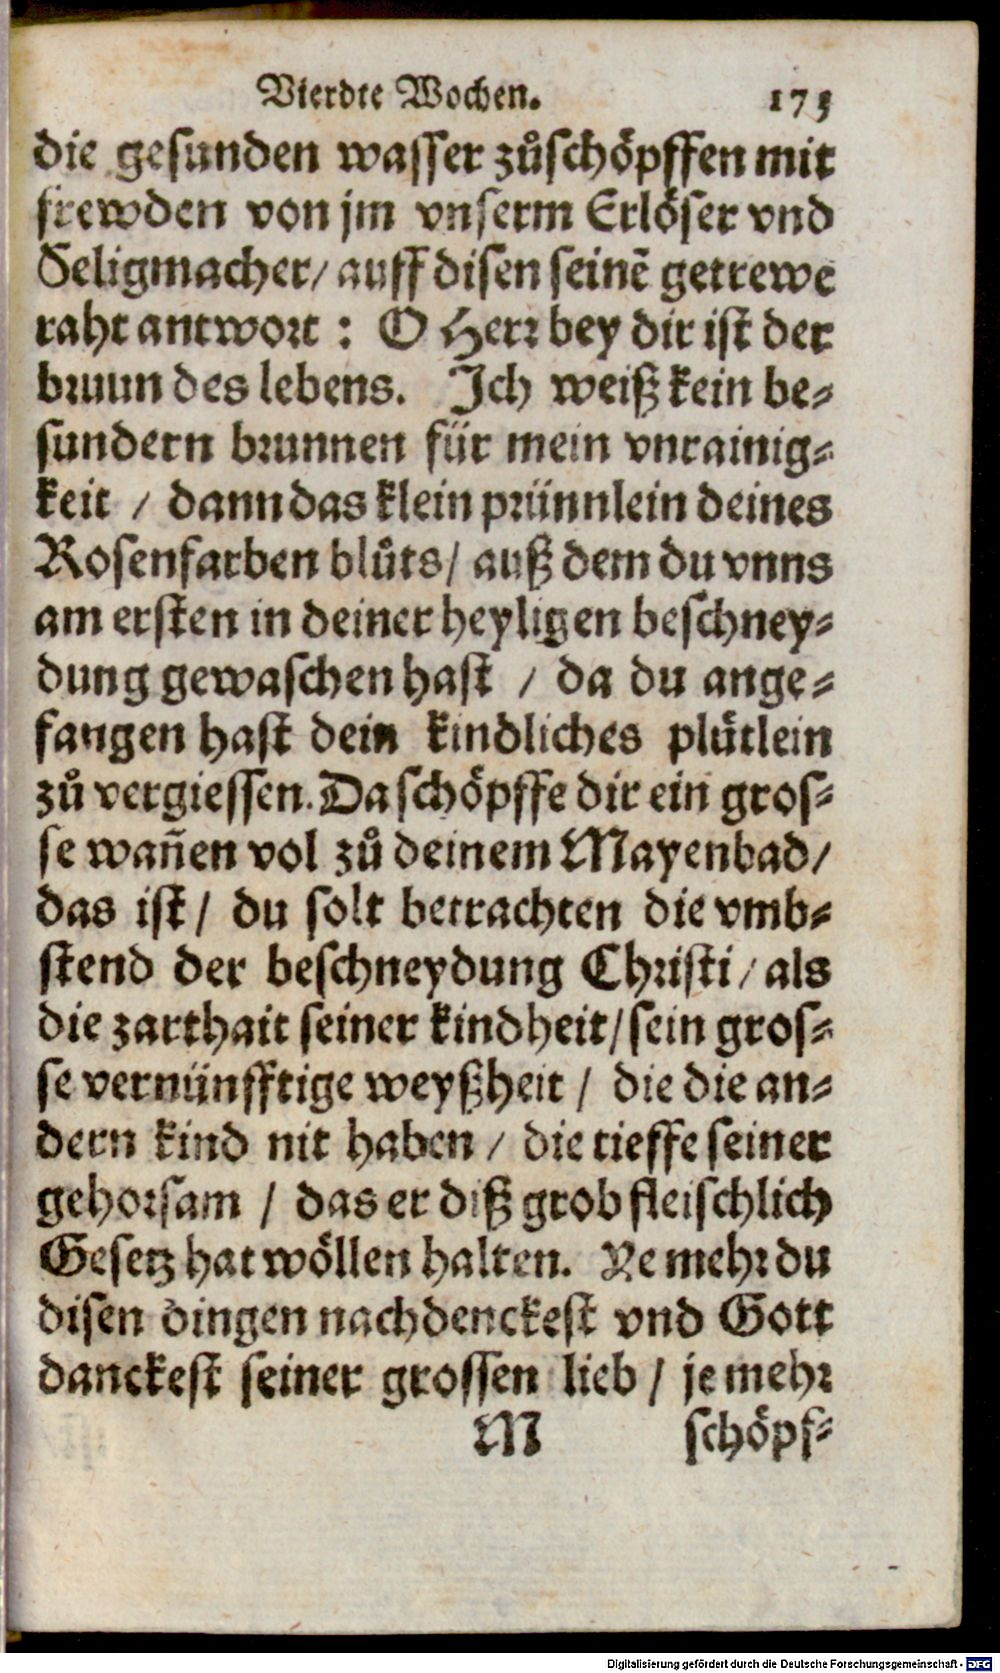 Vierdte Wochen. 173
die gesunden wasser zůschöpffen mit
frewden von jm vnserm Erlöser vnd
Seligmacher/ auff disen seinẽ getrewe
raht antwort : O Herr bey dir ist der
bruun des lebens. Jch weiß kein be-
sundern brunnen für mein vnrainig-
keit / dann das klein prünnlein deines
Rosenfarben blůts/ auß dem du vnns
am ersten in deiner heyligen beschney-
dung gewaschen hast / da du ange-
fangen hast dein kindliches plütlein
zů vergiessen. Da schöpffe dir ein gros-
se wañen vol zů deinem Mayenbad/
das ist/ du solt betrachten die vmb-
stend der beschneydung Christi/ als
die zarthait seiner kindheit/ sein gros-
se vernünfftige weyßheit / die die an-
dern kind nit haben / die tieffe seiner
gehorsam / das er diß grob fleischlich
Gesetz hat wöllen halten. Ye mehr du
disen dingen nachdenckest vnd Gott
danckest seiner grossen lieb / je mehr
M schöpf-
Digitalisierung gefördert durch die Deutsche Forschungsgemeinschaft - DFG